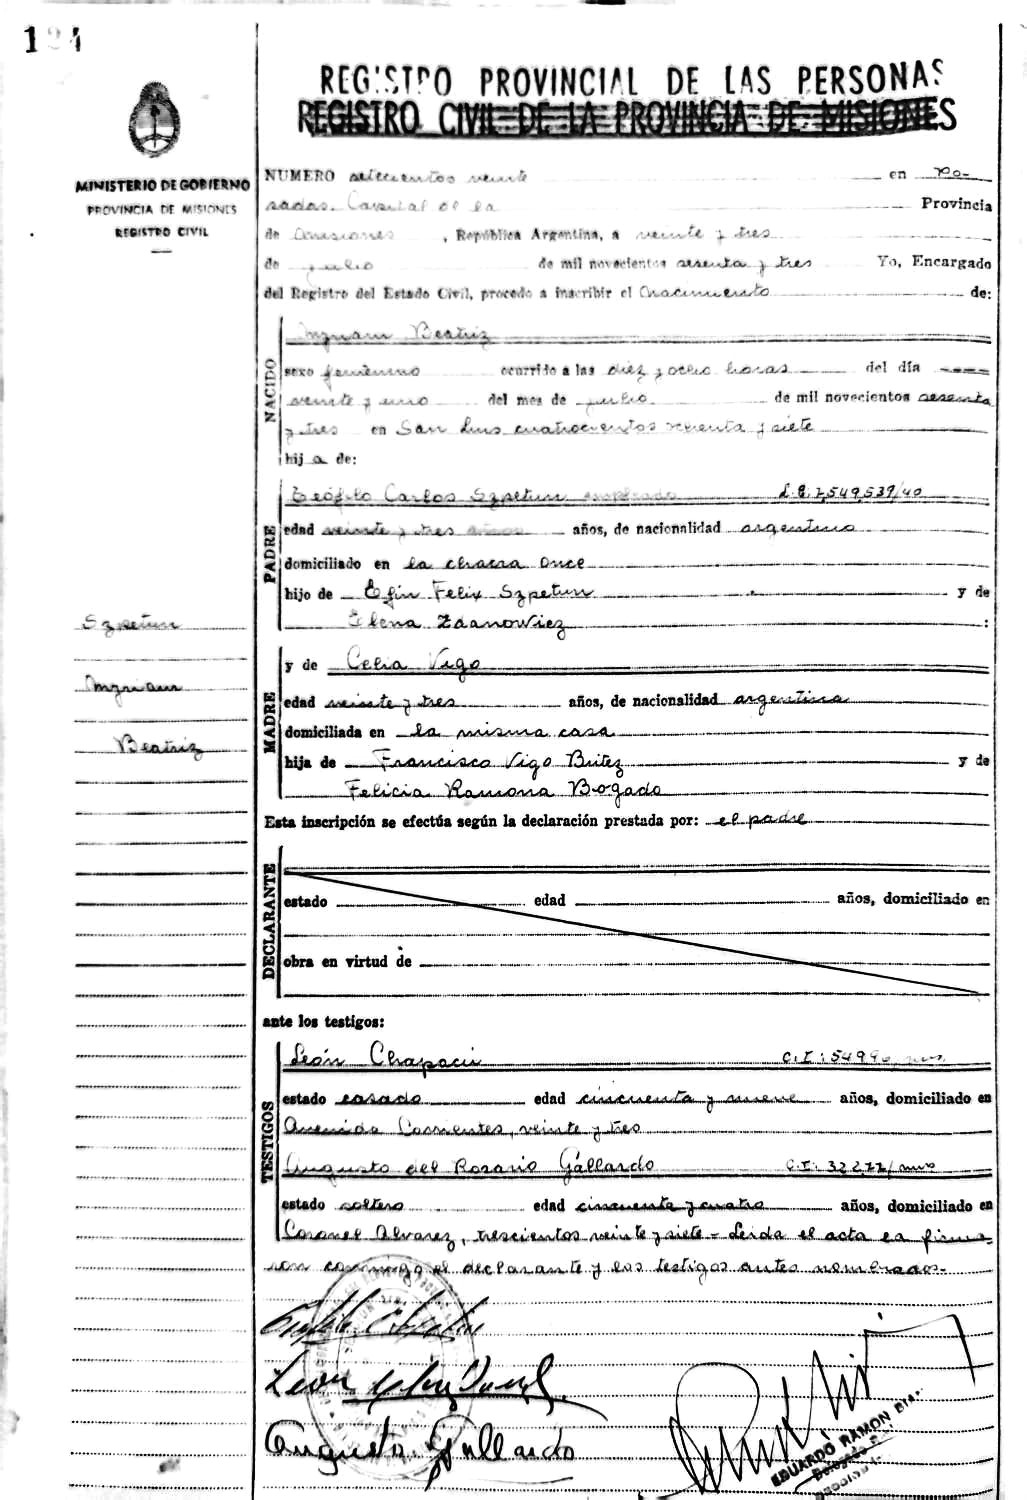 124
REGISTRO PROVINCIAL DE LAS PERSONAS
REGISTRO CIVIL DE LA PROVINCIA DE MISIONES
MINISTERIO DE GOBIERNO
PROVINCIA DE MISIONES
REGISTRO CIVIL
NUMERO setecientos veinte en Po-
sadas. Capital de la Provincia
de Misiones, República Argentina, a veinte y tres
de julio de mil novecientos sesenta y tres Yo, Encargado
del Registro del Estado Civil, procedo a inscribir el Nacimiento de:
NACIDO
Myriam Beatriz
sexo femenino ocurrido a las diez y ocho horas del día
veinte y uno del mes de julio de mil novecientos sesenta
y tres en San Luis cuatrocientos setenta y siete
hija de:
PADRE
Teófilo Carlos Szpetun empleado L.E. 7,549,539/40
edad veinte y tres años años, de nacionalidad argentino
domiciliado en la chacra once
hijo de Efin Felix Szpetun y de
Elena Zdanowiez :
Szpetun
Myriam
Beatriz
MADRE
y de Celia Vigo
edad veinte y tres años, de nacionalidad argentina
domiciliada en la misma casa
hija de Francisco Vigo Britez y de
Felicia Ramona Bogado
Esta inscripción se efectúa según la declaración prestada por: el padre
DECLARANTE
estado edad años, domiciliado en
obra en virtud de
ante los testigos:
TESTIGOS
León Chapacú C.I: 54996
estado casado edad cincuenta y nueve años, domiciliado en
Avenida Corrientes, veinte y tres
Augusto del Rosario Gallardo C.I: 32277/mnes
estado soltero edad cincuenta y cuatro años, domiciliado en
Coronel Alvarez, trescientos veinte y siete - Leida el acta la firma-
ron conmigo el declarante y los testigos antes nombrados.-
Augusto Gallardo
EDUARDO RAMON
Delegado